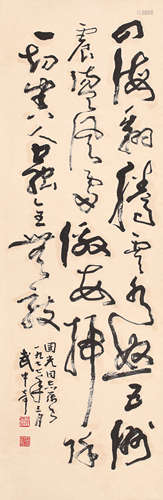 四海翻腾云水怒五洲
震荡风雷激要扫除
一切害人虫全无敌
国光同志属
一九七七年三月
武中奇